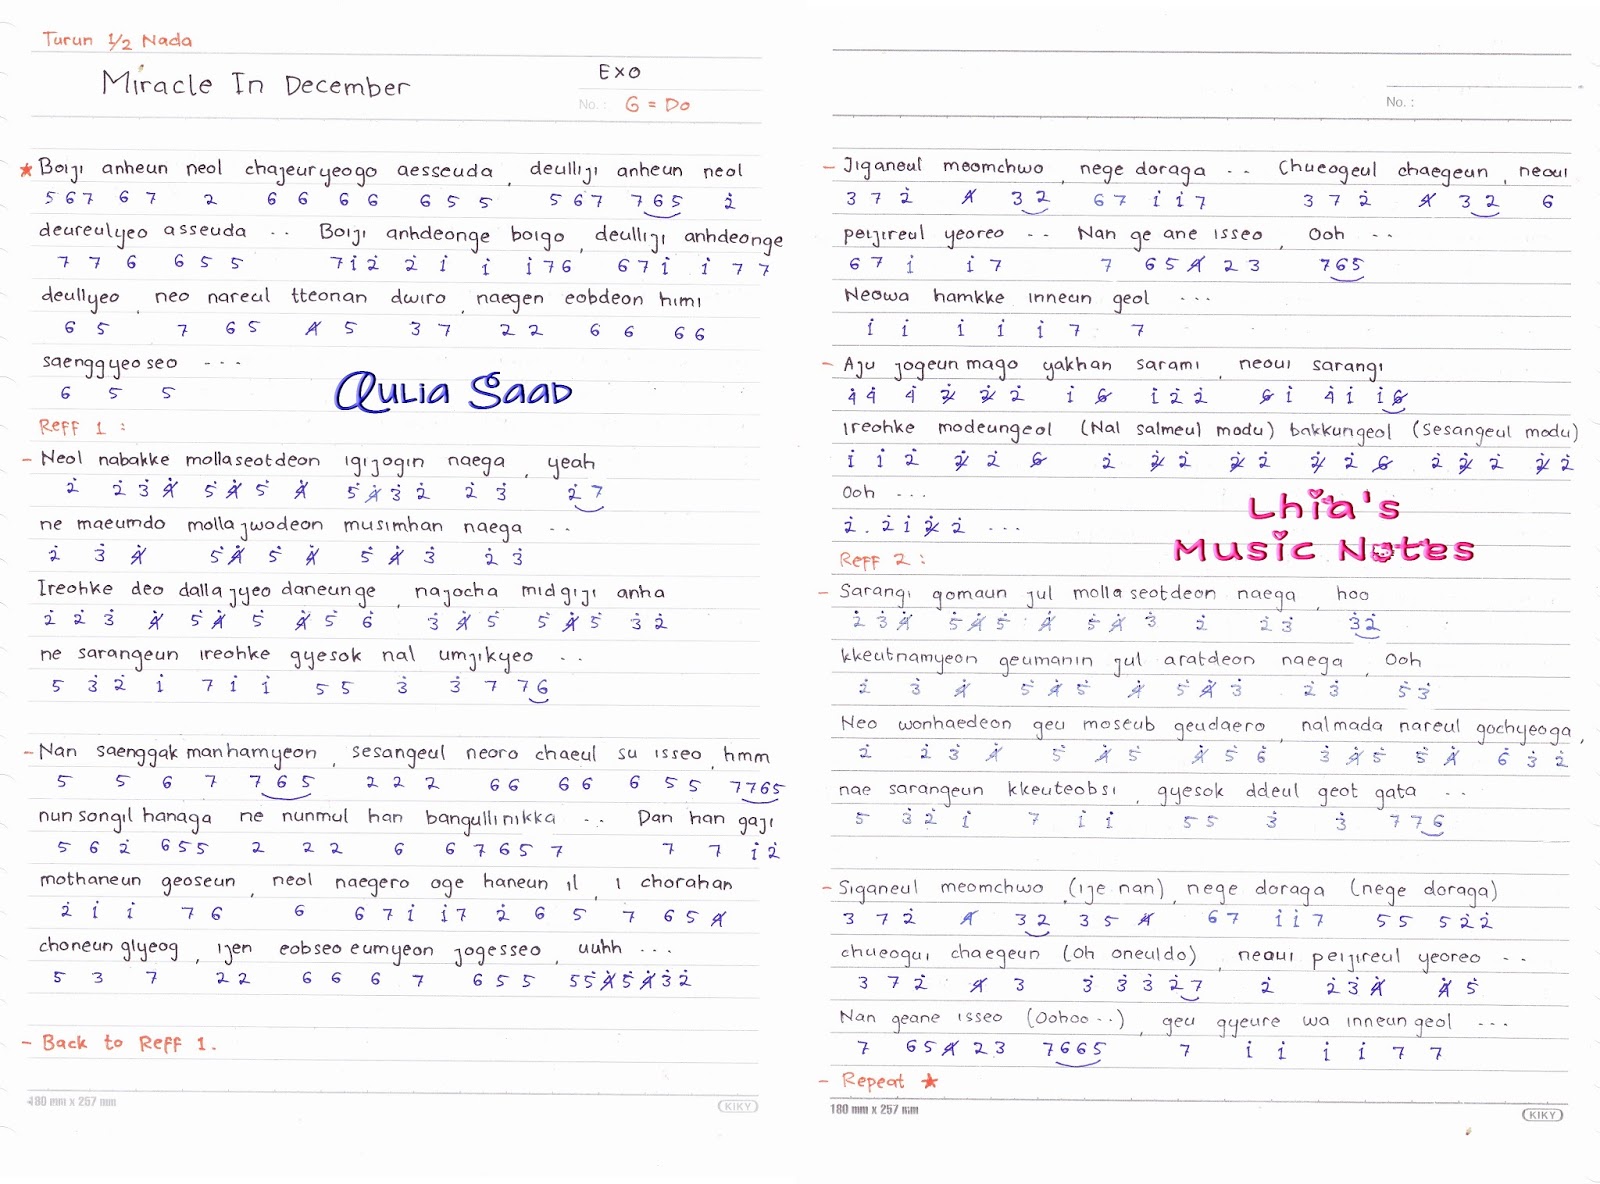 Turun 1/2 Nada
Miracle In December
EXO
No. : G = Do
★ Boiji anheun neol chajeuryeogo aesseuda, deulliji anheun neol
5 6 7 6 7 2 6 6 6 6 6 5 5 5 6 7 7 6 5 2
deureulyeo asseuda -- Boiji anhdeonge boigo, deulliji anhdeonge
7 7 6 6 5 5 7 1 2 2 1 1 1 7 6 6 7 1 1 7 7
deullyeo, neo nareul tteonan dwiro, naegen eobdeon himi
6 5 7 6 5 4 5 3 7 2 2 6 6 6 6
saenggyeoseo ---
6 5 5
Aulia Saad
Reff 1 :
- Neol nabakke mollaseotdeon igijogin naega, yeah
2 2 3 4 5 4 5 4 5 4 3 2 2 3 2 7
ne maeumdo molla jwodeon musimhan naega --
2 3 4 5 4 5 4 5 4 3 2 3
Ireohke deo dalla jyeo daneunge, najocha midgiji anha
2 2 3 4 5 4 5 4 5 6 3 4 5 5 4 5 3 2
ne sarangeun ireohke gyesok nal umjikyeo --
5 3 2 1 7 1 1 5 5 3 3 7 7 6
- Nan saenggak manhamyeon, sesangeul neoro chaeul su isseo, hmm
5 5 6 7 7 6 5 2 2 2 6 6 6 6 6 5 5 7 7 6 5
nunsongil hanaga ne nunmul han bangullinikka -- Dan han gaji
5 6 2 6 5 5 2 2 2 6 6 7 6 5 7 7 7 1 2
mothaneun geoseun, neol naegero oge haneun il, i chorahan
2 1 1 7 6 6 6 7 1 1 7 2 6 5 7 6 5 4
choneun glyeog, ijen eobseo eumyeon jogesseo, uuhh ---
5 3 7 2 2 6 6 6 7 6 5 5 5 5 4 5 4 3 2
- Back to Reff 1.
180 mm x 257 mm
KIKY
No. :
- Jiganeul meomchwo, nege doraga -- Chueogeul chaegeun, neoui
3 7 2 4 3 2 6 7 1 1 7 3 7 2 4 3 2 6
peijireul yeoreo -- Nan ge ane isseo, Ooh --
6 7 1 1 7 7 6 5 4 2 3 7 6 5
Neowa hamkke inneun geol ---
1 1 1 1 1 7 7
- Aju jogeun mago yakhan sarami, neoui sarangi
4 4 4 2 2 2 1 6 1 2 2 6 1 4 1 1 6
Ireohke modeungeol (Nal salmeul modu) bakkungeol (Sesangeul modu)
1 1 2 2 2 6 2 2 2 2 2 2 2 6 2 2 2 2 2
Ooh ---
2 . 2 1 2 2 ---
Lhia's
Music Notes
Reff 2 :
- Sarangi gomaun jul mollaseotdeon naega, hoo
2 3 4 5 4 5 4 5 4 3 2 2 3 3 2
kkeutnamyeon geumanin jul aratdeon naega, Ooh
2 3 4 5 4 5 4 5 4 3 2 3 5 3
Neo wonhaedeon geu moseub geudaero, nalmada nareul gochyeoga,
2 2 3 4 5 4 5 4 5 6 3 4 5 5 4 6 3 2
nae sarangeun kkeuteobsi, gyesok ddeul geot gata --
5 3 2 1 7 1 1 5 5 3 3 7 7 6
- Siganeul meomchwo (ije nan), nege doraga (nege doraga)
3 7 2 4 3 2 3 5 4 6 7 1 1 7 5 5 5 2 2
chueogui chaegeun (Oh oneuldo), neoui peijireul yeoreo --
3 7 2 4 3 3 3 3 2 7 2 2 3 4 4 5
Nan geane isseo (Oohoo --), geu gyeure wa inneun geol ---
7 6 5 4 2 3 7 6 6 5 7 1 1 1 1 7 7
- Repeat ★
180 mm x 257 mm
KIKY